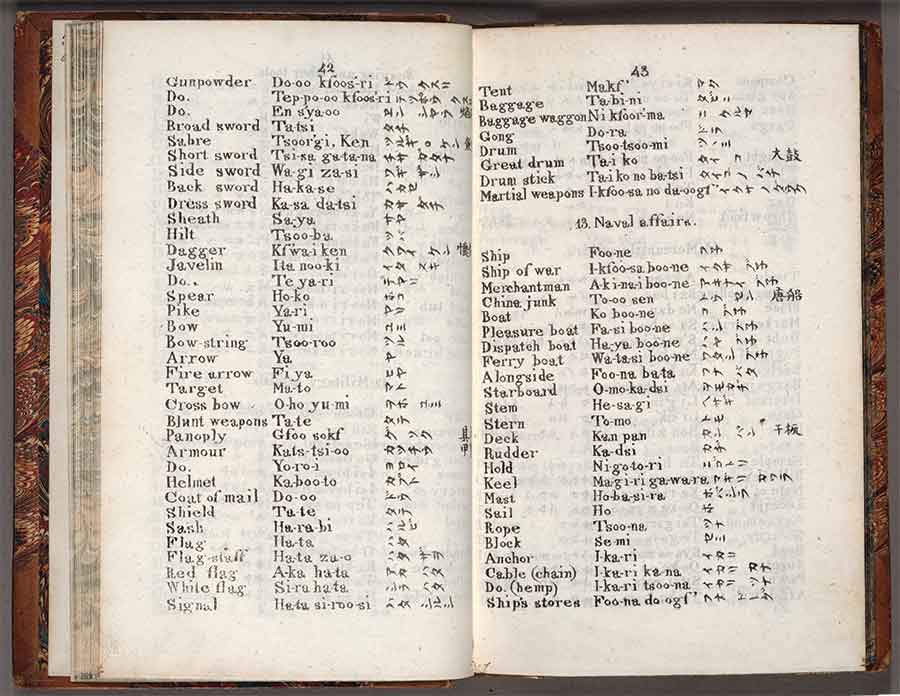 42
Gunpowder Do-oo kfoos'ri ドフ クスリ
Do. Tep-po-oo kfoos'ri テツポフ クス
Do. En sya-oo エン シヤウ 焔
Broad sword Ta-tsi タチ
Sabre Tsoorgi, Ken ツルギ ケン
Short sword Tsi-sa ga-ta-na チサ ガタナ
Side sword Wa-gi za-si ワキ ザシ
Back sword Ha-ka-se ハカセ
Dress sword Ka-sa da-tsi カサ ダチ
Sheath Sa-ya サヤ
Hilt Tsoo-ba ツバ
Dagger Kf'wa-i ken クワイ ケン
Javelin Ita noo-ki イタ ヌキ
Do.. Te ya-ri テヤリ
Spear Ho-ko ホコ
Pike Ya-ri ヤリ
Bow Yu-mi ユミ
Bow-string Tsoo-roo ツル
Arrow Ya ヤ
Fire arrow Fi ya ヒヤ
Target Ma-to マト
Cross bow O-ho yu-mi ヲホ ユミ
Blunt weapons Ta-te タテ
Panoply Gfoo sokf グ ソク 具
Armour Kats-tsi-oo カツチウ 甲
Do. Yo-ro-i ヨロイ
Helmet Ka-boo-to カブト
Coat of mail Do-oo ドウ
Shield Ta-te タテ
Sash Ha-ra-bi ハルビ
Flag Ha-ta ハタ
Flag-staff Ha-ta za-o ハタ ザヲ
Red flag A-ka ha-ta アカ ハタ
White flag Si-ra ha-ta シラ ハタ
Signal Ha-ta si-roo-si ハタ シルシ
43
Tent Makf' マク
Baggage Ta-bi-ni タビニ
Baggage waggon Ni kfoor'ma ニ クルマ
Gong Do-ra ドラ
Drum Tsoo-tsoo-mi ツヾミ
Great drum Ta-i ko タイ コ 大鼓
Drum stick Ta-i ko no ba-tsi タイコ ノ バチ
Martial weapons I-kfoo-sa no da-oogf' イクサ ノ ダウグ
13. Naval affairs.
Ship Foo-ne フネ
Ship of war I-kfoo-sa boo-ne イクサ ブネ
Merchantman A-ki-na-i boo-ne アキナイ ブネ
China junk To-oo sen トウ セン 唐船
Boat Ko boo-ne コ ブネ
Pleasure boat Fa-si boo-ne ハシ ブネ
Dispatch boat Ha-ya boo-ne ハヤ ブネ
Ferry boat Wa-ta-si boo-ne ワタシ ブネ
Alongside Foo-na ba-ta フナ バタ
Starboard O-mo-ka-dsi ヲモカヂ
Stem He-sa-gi ヘサキ
Stern To-mo トモ
Deck Kan pan カン パン 干板
Rudder Ka-dsi カヂ
Hold Ni-go-to-ri ニゴトリ
Keel Ma-gi-ri ga-wa-ra マギリ ガワラ
Mast Ho-ba-si-ra ホバシラ
Sail Ho ホ
Rope Tsoo-na ツナ
Block Se-mi セミ
Anchor I-ka-ri イカリ
Cable (chain) I-ka-ri ka-na イカリ カナ
Do. (hemp) I-ka-ri tsoo-na イカリ ツナ
Ship's stores Foo-na do ogf' フナ ドウグ